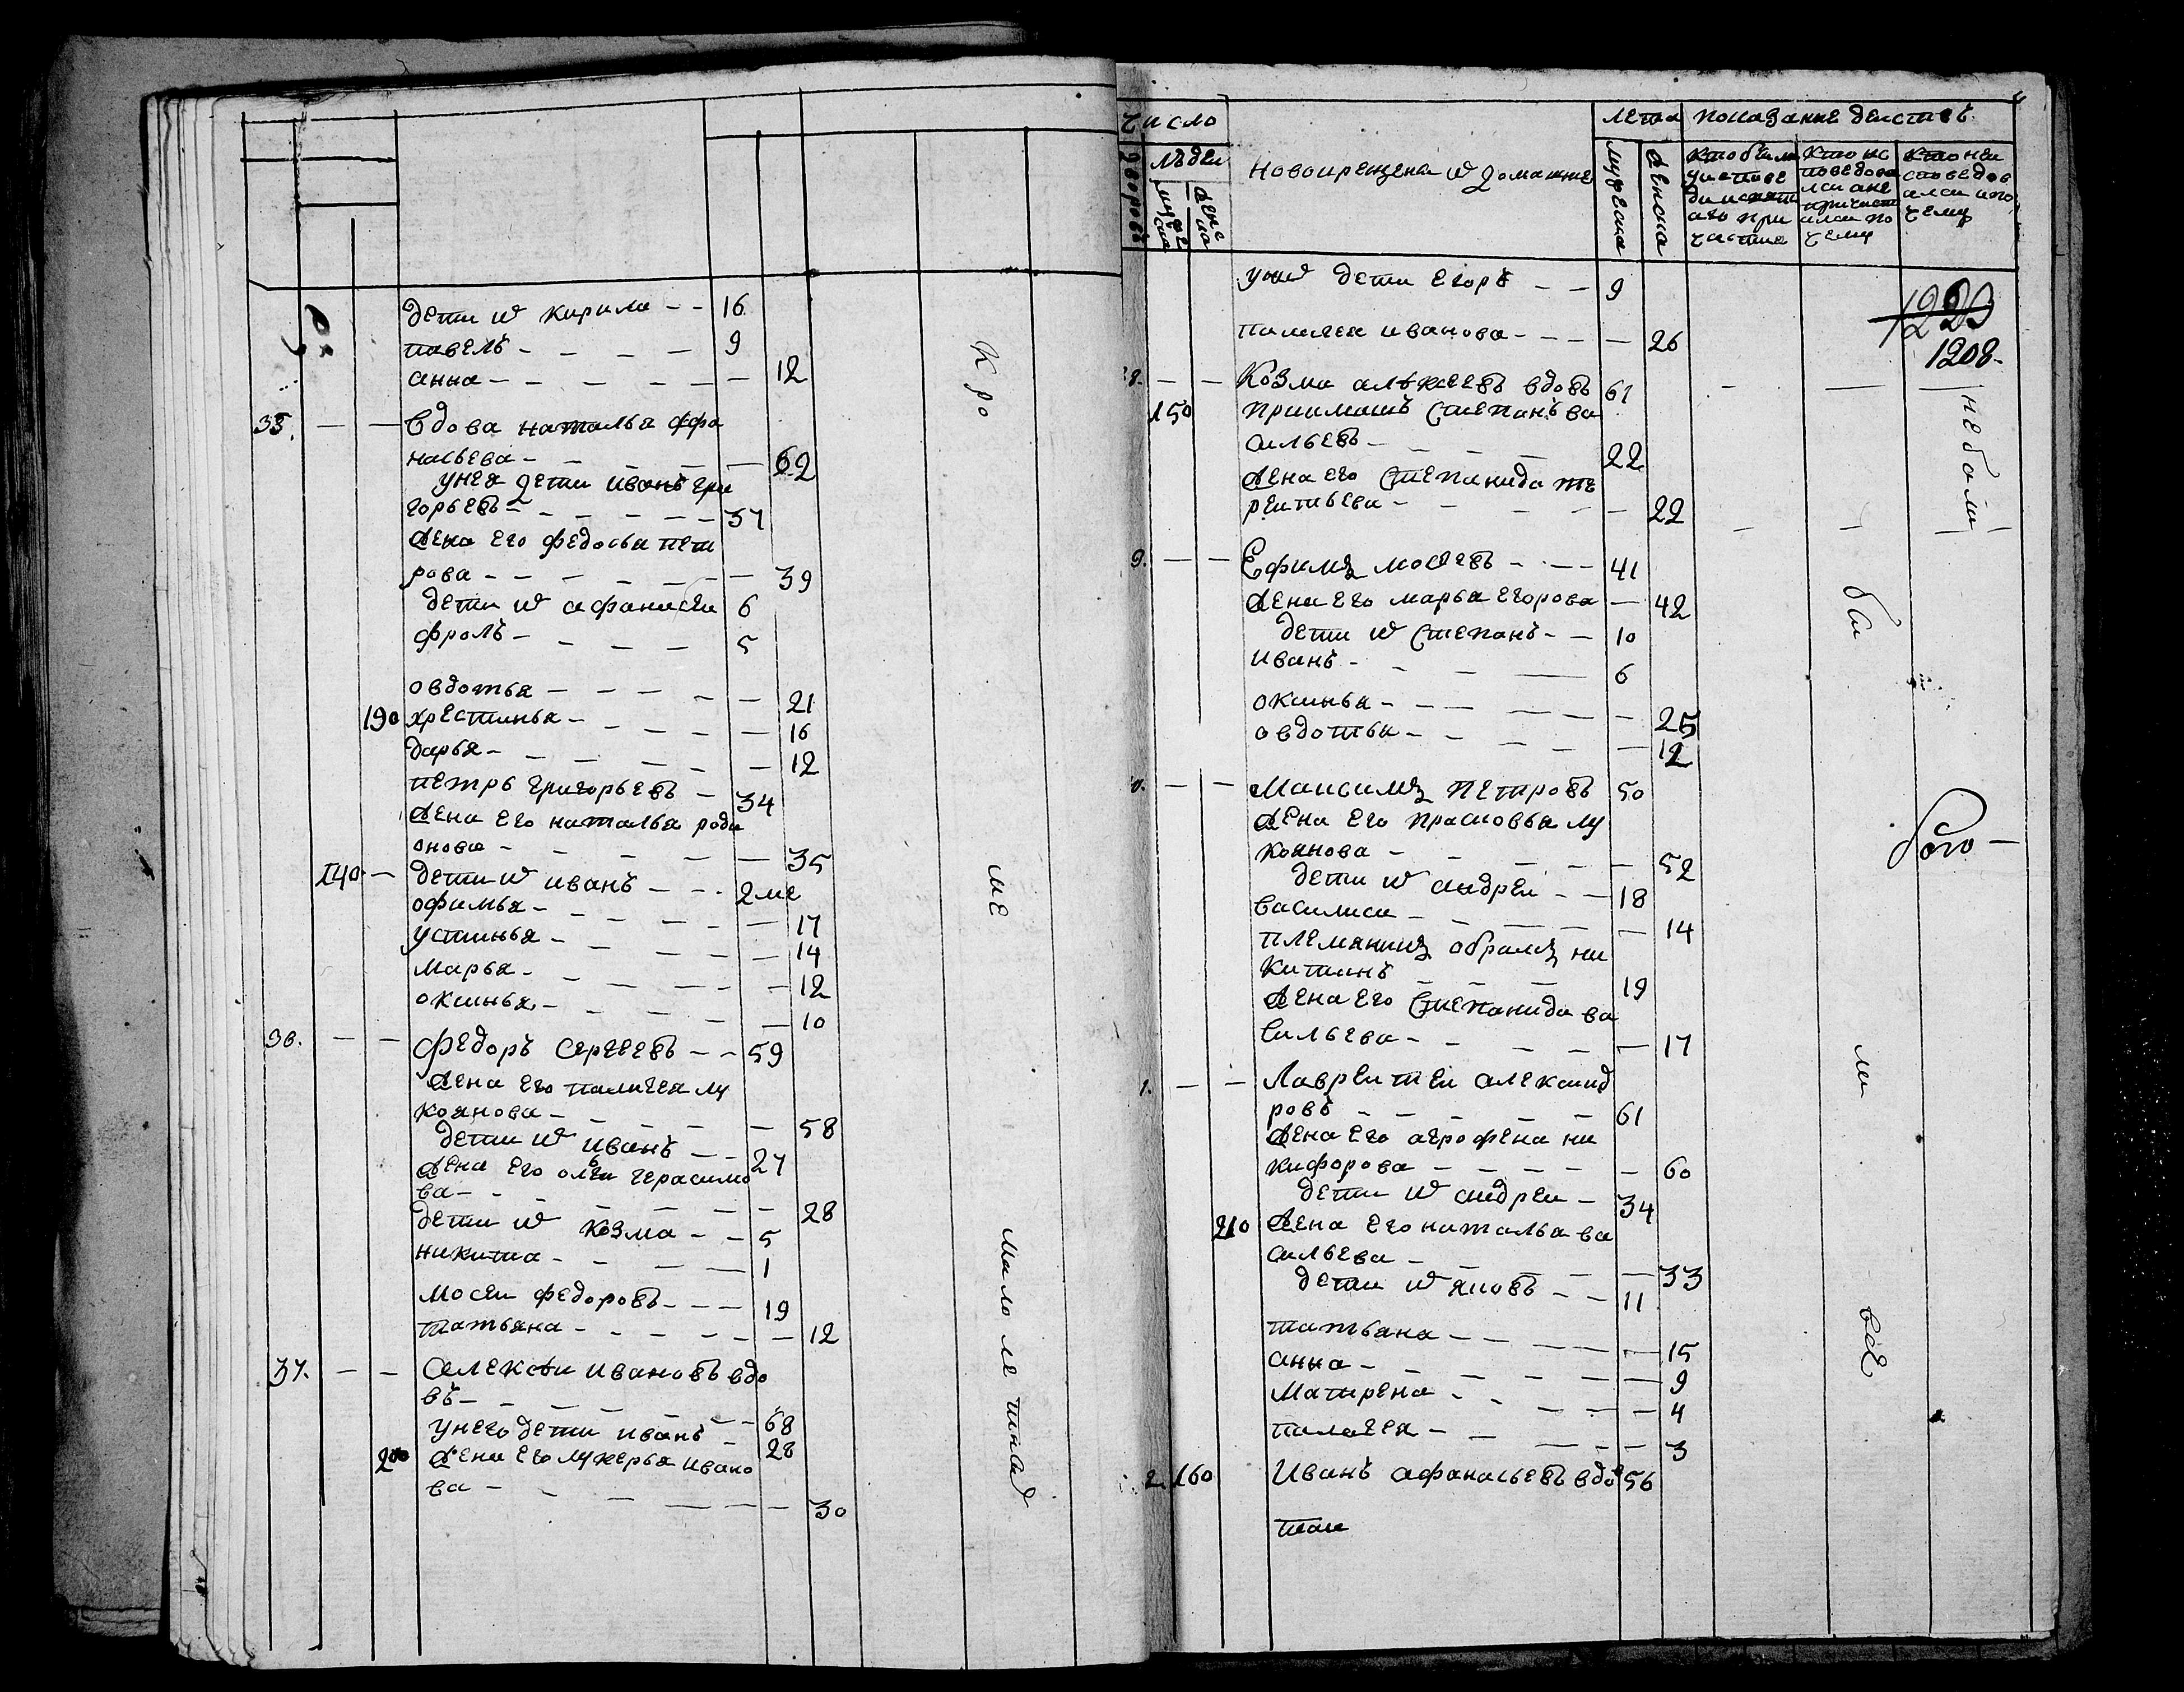 дети ихъ кирила - - 16
павелъ - - - - 9
анна - - - - - - 12
35. - - вдова наталья афа
насьева - - - - - 62
унея дети иванъ гри
горьевъ - - - - - - 37
жена его федосья пет
рова - - - - - - 39
дети ихъ афанасеи 6
фролъ - - - - 5
овдотья - - - - - 21
190 хрестинья - - - - - 16
дарья - - - - - - 12
петръ григорьевъ - 34
жена его наталья роди
онова - - - - - 35
140 - дети ихъ иванъ - - - 2 ме
офимья - - - - - 17
устинья - - - - - 14
марья - - - - - - 12
оксинья - - - - - 10
36. - - федоръ сергеевъ - - 59
жена его палагея лу
коянова - - - - - 58
дети ихъ иванъ - - 27
жена его ольга герасимо
ва - - - - - - 28
дети ихъ козма - - 5
никита - - - - 1
мосеи федоровъ - - - 19
татьяна - - - - - - 12
37. - - алексѣи ивановъ вдо
въ - - - - - - 68
унего дети иванъ - 28
200 жена его лукерья ивано
ва - - - - - - - 30
Кро
ме
малолетнад
число
дворовъ
людеи
мужеска
женска
новокрещены и домашние
лета
мужеска
женска
показание деиствъ
кто былъ
уисповеди
и святаго при
частие
кто ис
поведова
лси а не
причаст
илси по
чему
кто неи
споведов
алси и по
чему
1208.
у них дети егоръ - - 9
палагея иванова - - - - 26
8. - - Козма алѣксеевъ вдовъ 61
150 приимашъ степанъ ва
сильевъ - - - - 22
жена его степанида те
рентьева - - - - - 22
9. - - Ефимъ мосеевъ - - - - 41
жена его марья егорова - 42
дети ихъ степанъ - - 10
иванъ - - - - 6
оксинья - - - - - - 25
овдотья - - - - - 12
0. - - Максимъ петровъ 50
жена его прасковья лу
коянова - - - - - 52
дети ихъ андреи - - 18
василиса - - - - - 14
племянникъ обрамъ ни
китинъ - - - - 19
жена его степанида ва
сильева - - - - - 17
1. - - Лаврентеи александ
ровъ - - - - - 61
жена его агрофена ни
кифорова - - - - - 60
дети ихъ андреи - 34
210 жена его наталья ва
сильева - - - - - 33
дети ихъ яковъ - - 11
татьяна - - - - - - 15
анна - - - - - - 9
матрена - - - - - 4
палагея - - - - - 3
2. 160 Иванъ афанасьевъ вдовъ 56
не были
бы
ли
все
бого -